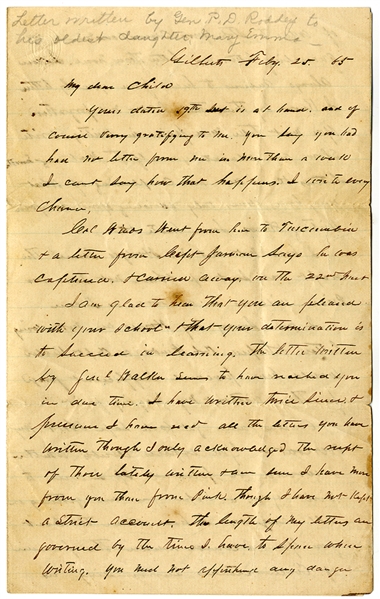 Letter written by Gen P. D. Roddey to
his oldest daughter Mary Emma
Gilberts Feby. 25 65
My dear Child
Yours dated 19th Inst is at hand. and of
course very gratifying to me, you say you had
had not letter from me in more than a week
I cant say how that happens. I write every
Chance,
Col Winds went from here to Tuscumbia
& a letter from Capt Jarvison Says he was
captured, & carried away, on the 22nd Inst
I am glad to hear that you are pleased
with your school & that your determination is
to succeed in learning. The letter written
by Genl Walker seems to have reached you
in due time. I have written twice since, &
presume I have recd all the letters you have
written though I only acknowledged the recpt
of those lately written & am sure I have more
from you than from Pink, though I have not kept
a strict account. The length of my letters are
governed by the time I have to spare when
writing. you need not apprehend any danger